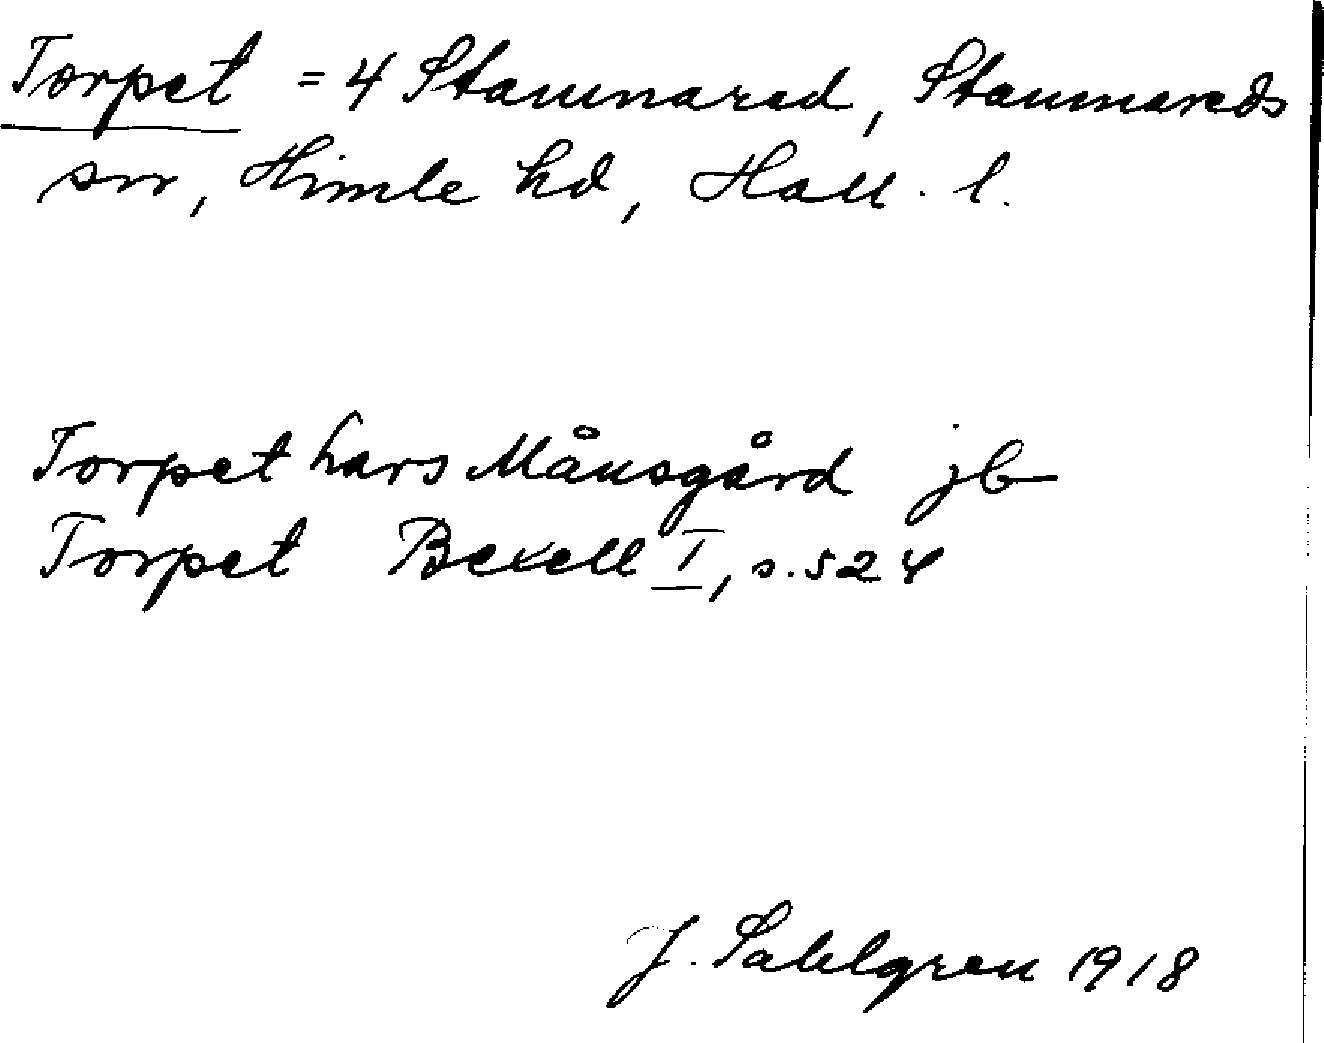 Torpet = 4 Stamnared, Stamnareds
sn, Himle hd, Hall. l.
Torpet Lars Månsgård jb
Torpet Bexell I, s. 524
J. Sahlgren 1918